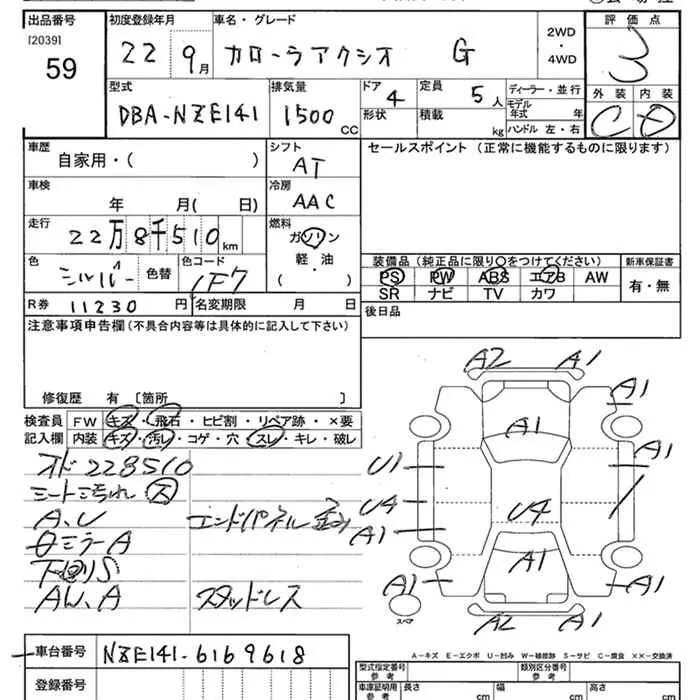 出品番号 初度登録年月 車名・グレード 評価点
[2039]
59 22 9月 カローラアクシオ G 2WD・4WD 3
型式 排気量 ドア 4 定員 5人 ディーラー・並行 外装 内装
DBA-NZE141 1500 CC 形状 積載 kg モデル年式 年 C D
ハンドル 左・右
車歴 シフト セールスポイント (正常に機能するものに限ります)
自家用・( ) AT
車検 冷房
年 月( 日) AAC
走行 燃料
22万8千510km ガソリン
軽・油
( )
色 シルバー 色替 色コード 1F7
装備品 (純正品に限り○をつけてください) 新車保証書
PS PW ABS エアB AW 有・無
SR ナビ TV カワ
R券 11230円 名変期限 月 日 後日品
注意事項申告欄 (不具合内容等は具体的に記入して下さい)
修復歴 有 [箇所 ]
検査員 FW キズ・飛石・ヒビ割・リペア跡・×要
記入欄 内装 キズ・汚レ・コゲ・穴・スレ・キレ・破レ
オド228510
シート汚れ ス
A、U エンドパネル
ミラーA
下回りS
AW、A スタッドレス
A2 A1
A1
A1
U1 A1
U4 U4
A1
A1
A1 A1
スペア
A2 A1
A-キズ E-エクボ U-凹み W-補修跡 S-サビ C-腐食 ××-交換済
車台番号 NZE141-6169618
登録番号
型式指定番号 参考 類別区分番号 参考
車庫証明用 参考 長さ cm 幅 cm 高さ cm